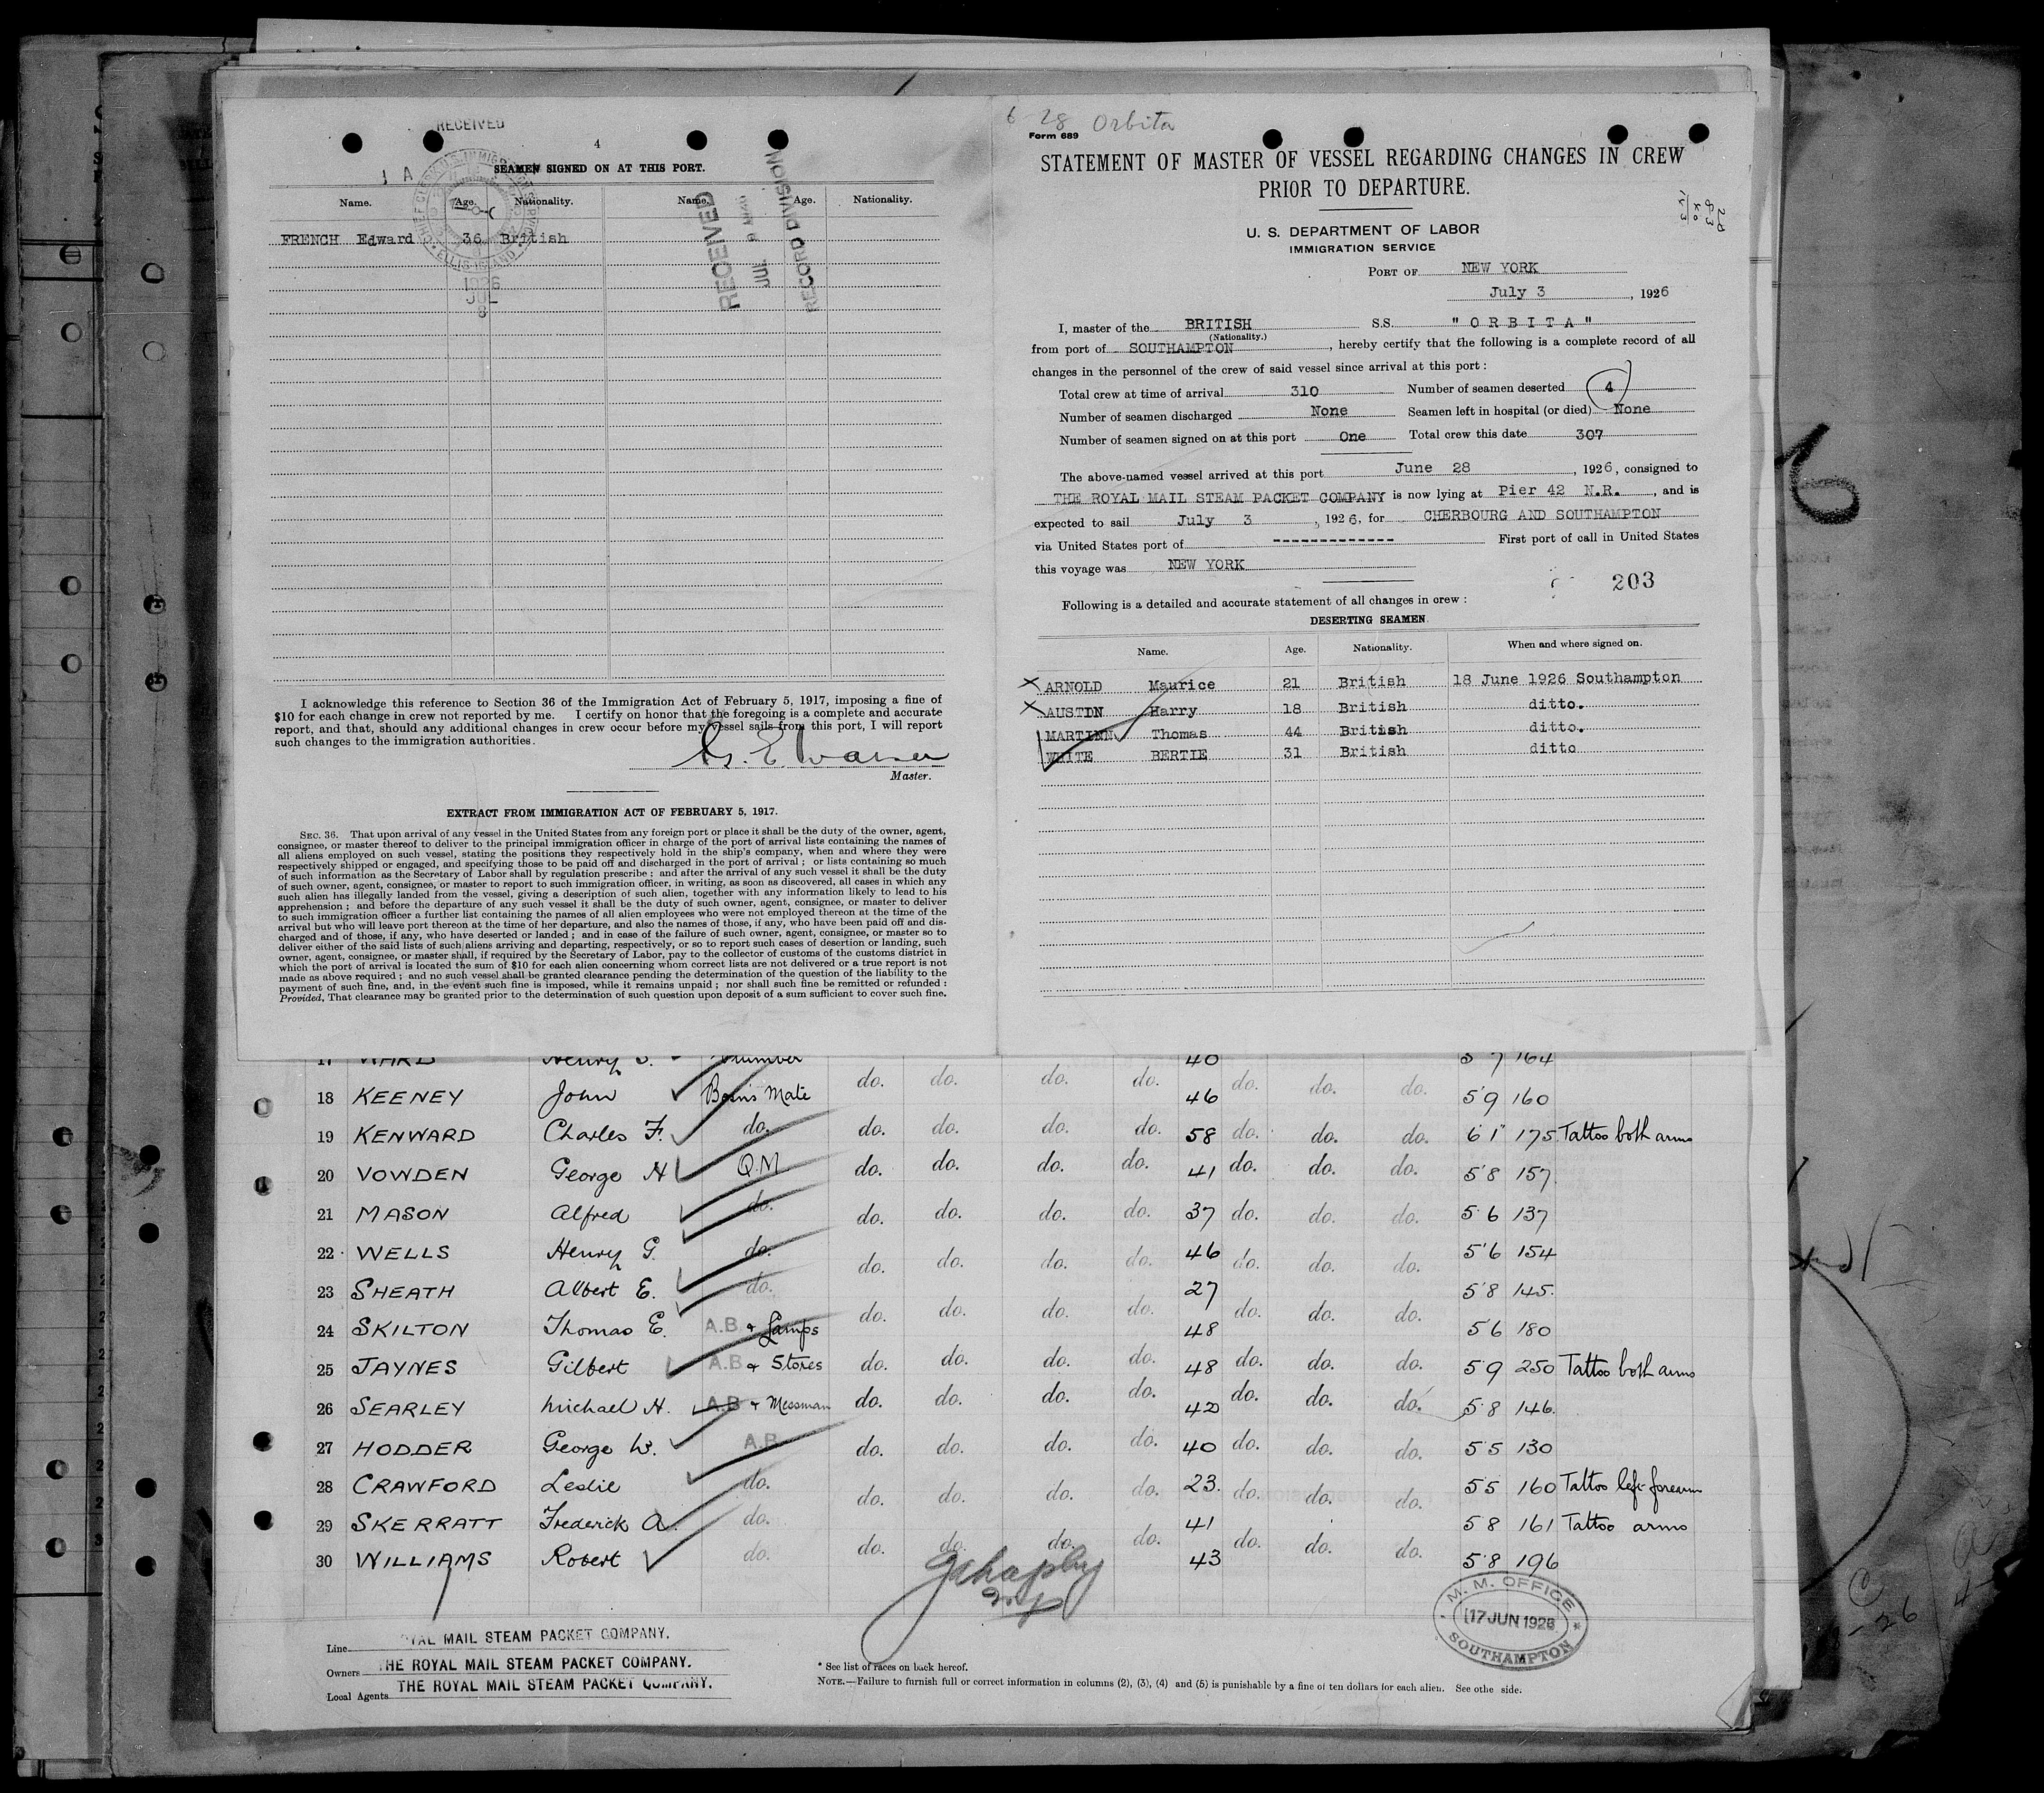 RECEIVED
4
SEAMEN SIGNED ON AT THIS PORT.
Name. Age. Nationality. Name. Age. Nationality.
FRENCH Edward 36 British
CHIEF CLERK U.S. IMMIGRATION SERVICE
ELLIS ISLAND
1926
JUL
8
RECEIVED
JUL
RECORD DIVISION
I acknowledge this reference to Section 36 of the Immigration Act of February 5, 1917, imposing a fine of
$10 for each change in crew not reported by me. I certify on honor that the foregoing is a complete and accurate
report, and that, should any additional changes in crew occur before my vessel sails from this port, I will report
such changes to the immigration authorities.
Master.
EXTRACT FROM IMMIGRATION ACT OF FEBRUARY 5, 1917.
SEC. 36. That upon arrival of any vessel in the United States from any foreign port or place it shall be the duty of the owner, agent,
consignee, or master thereof to deliver to the principal immigration officer in charge of the port of arrival lists containing the names of
all aliens employed on such vessel, stating the positions they respectively hold in the ship's company, when and where they were
respectively shipped or engaged, and specifying those to be paid off and discharged in the port of arrival; or lists containing so much
of such information as the Secretary of Labor shall by regulation prescribe; and after the arrival of any such vessel it shall be the duty
of such owner, agent, consignee, or master to report to such immigration officer, in writing, as soon as discovered, all cases in which any
such alien has illegally landed from the vessel, giving a description of such alien, together with any information likely to lead to his
apprehension; and before the departure of any such vessel it shall be the duty of such owner, agent, consignee, or master to deliver
to such immigration officer a further list containing the names of all alien employees who were not employed thereon at the time of the
arrival but who will leave port thereon at the time of her departure, and also the names of those, if any, who have been paid off and dis-
charged and of those, if any, who have deserted or landed; and in case of the failure of such owner, agent, consignee, or master so to
deliver either of the said lists of such aliens arriving and departing, respectively, or so to report such cases of desertion or landing, such
owner, agent, consignee, or master shall, if required by the Secretary of Labor, pay to the collector of customs of the customs district in
which the port of arrival is located the sum of $10 for each alien concerning whom correct lists are not delivered or a true report is not
made as above required; and no such vessel shall be granted clearance pending the determination of the question of the liability to the
payment of such fine, and, in the event such fine is imposed, while it remains unpaid; nor shall such fine be remitted or refunded:
Provided, That clearance may be granted prior to the determination of such question upon deposit of a sum sufficient to cover such fine.
6 28 Orbita
Form 689
STATEMENT OF MASTER OF VESSEL REGARDING CHANGES IN CREW
PRIOR TO DEPARTURE.
U. S. DEPARTMENT OF LABOR
IMMIGRATION SERVICE
PORT OF NEW YORK
July 3, 1926
I, master of the BRITISH S.S. "ORBITA"
(Nationality.)
from port of SOUTHAMPTON, hereby certify that the following is a complete record of all
changes in the personnel of the crew of said vessel since arrival at this port:
Total crew at time of arrival 310 Number of seamen deserted 4
Number of seamen discharged None Seamen left in hospital (or died) None
Number of seamen signed on at this port One Total crew this date 307
The above-named vessel arrived at this port June 28, 1926, consigned to
THE ROYAL MAIL STEAM PACKET COMPANY is now lying at Pier 42 N.R., and is
expected to sail July 3, 1926, for CHERBOURG AND SOUTHAMPTON
via United States port of ------------- First port of call in United States
this voyage was NEW YORK
203
Following is a detailed and accurate statement of all changes in crew:
DESERTING SEAMEN
Name. Age. Nationality. When and where signed on.
ARNOLD Maurice 21 British 18 June 1926 Southampton
AUSTIN Harry 18 British ditto.
MARTINN Thomas 44 British ditto.
WHITE BERTIE 31 British ditto
17 WARD Henry S. Plumber 40 5 7 164
18 KEENEY John Bosns Mate do. do. do. do. 46 do. do. do. 5 9 160
19 KENWARD Charles F. do. do. do. do. do. 58 do. do. do. 6 1 175 Tattoo both arms
20 VOWDEN George H Q.M do. do. do. do. 41 do. do. do. 5 8 157
21 MASON Alfred do. do. do. do. do. 37 do. do. do. 5 6 137
22 WELLS Henry G. do. do. do. do. do. 46 do. do. do. 5 6 154
23 SHEATH Albert E. do. 27 5 8 145
24 SKILTON Thomas E. A.B + Lamps do. do. do. do. 48 do. do. do. 5 6 180
25 JAYNES Gilbert A.B + Stores do. do. do. do. 48 do. do. do. 5 9 250 Tattoo both arms
26 SEARLEY Michael H. A.B + Messman do. do. do. do. 42 do. do. do. 5 8 146
27 HODDER George W. A.B do. do. do. do. 40 do. do. do. 5 5 130
28 CRAWFORD Leslie do. do. do. do. do. 23 do. do. do. 5 5 160 Tattoo left forearm
29 SKERRATT Frederick A. do. 41 5 8 161 Tattoo arms
30 WILLIAMS Robert do. do. do. do. do. 43 do. do. do. 5 8 196
M. M. OFFICE
17 JUN 1926
SOUTHAMPTON
Line ROYAL MAIL STEAM PACKET COMPANY.
Owners THE ROYAL MAIL STEAM PACKET COMPANY.
Local Agents THE ROYAL MAIL STEAM PACKET COMPANY.
* See list of races on back hereof.
NOTE.—Failure to furnish full or correct information in columns (2), (3), (4) and (5) is punishable by a fine of ten dollars for each alien. See othe side.